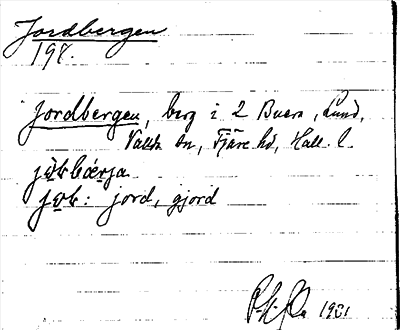 Jordbergen
198.
Jordbergen, berg i 2 Buera, Lund,
Valda sn, Fjäre hd, Hall. l.
: jord, gjord
1921